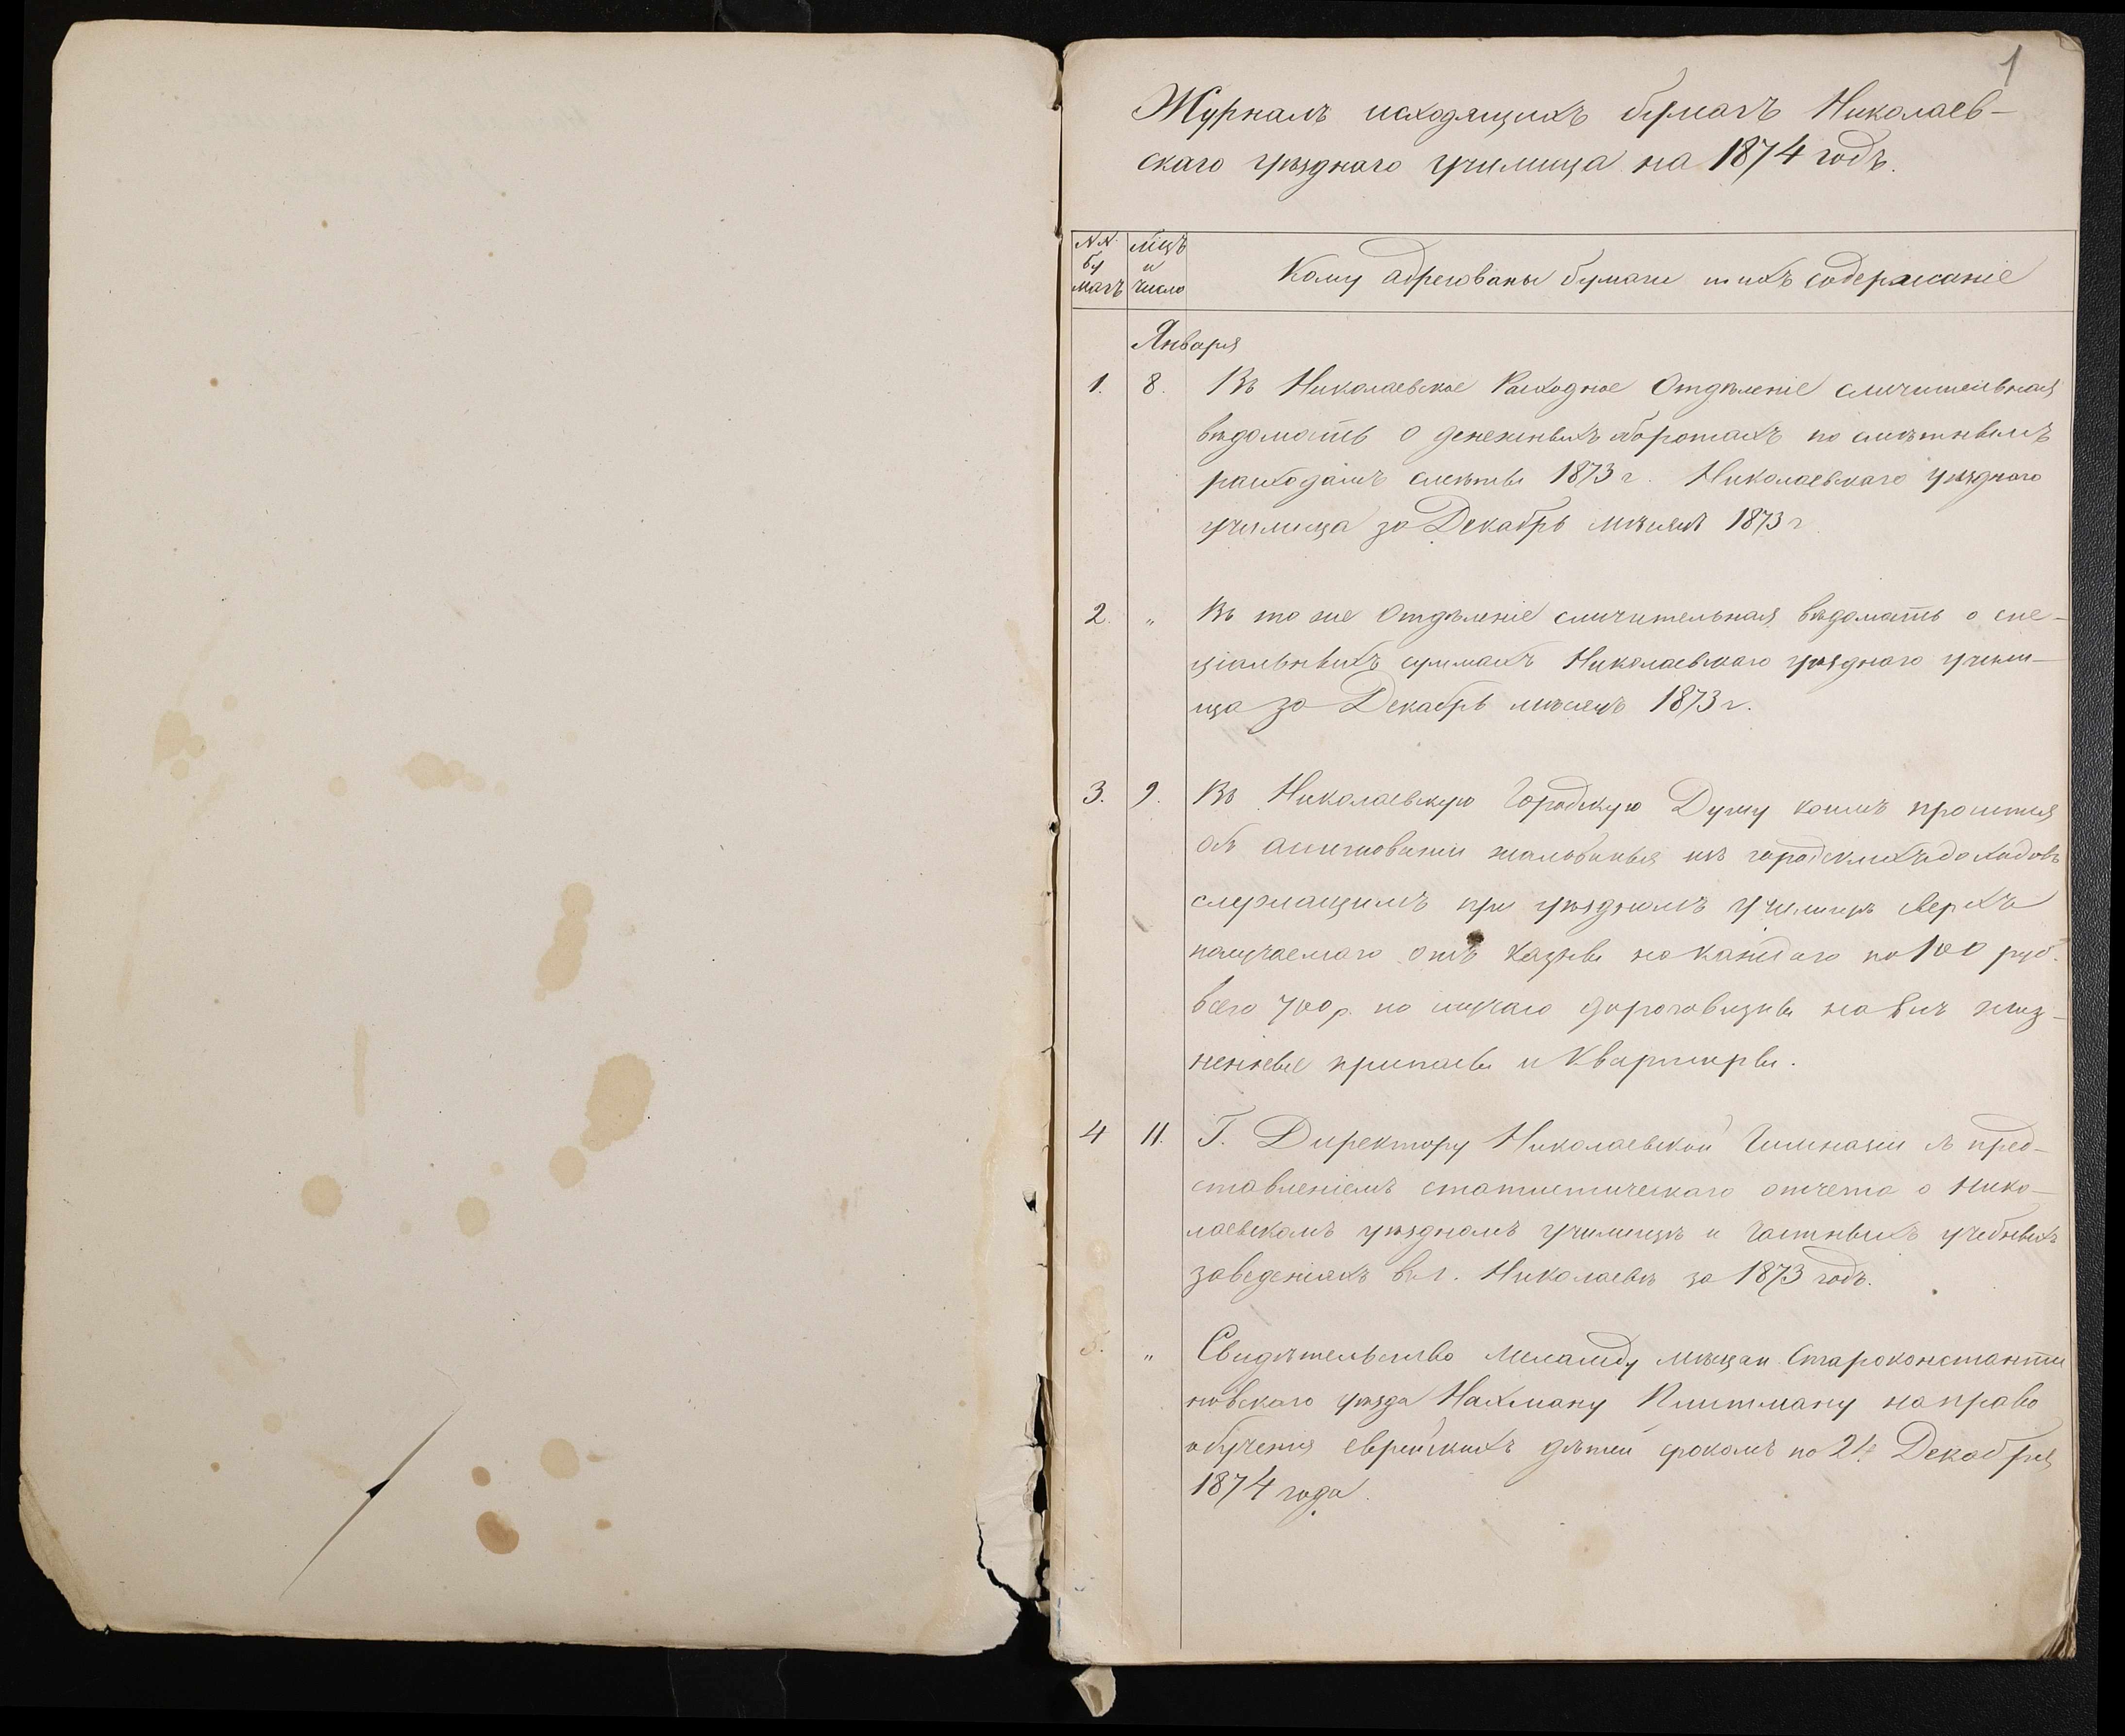 1
Журналъ исходящихъ бумагъ Николаев-
скаго уѣзднаго училища на 1874 годъ.
NN бу магъ
мцъ и число
Кому адресованы бумаги и ихъ содержаніе
Января
1. 8. Въ Николаевское Расходное Отдѣленіе сличительная
вѣдомость о денежныхъ оборотахъ по смѣтнымъ
расходамъ смѣты 1873 г. Николаевскаго уѣзднаго
училища за Декабрь мѣсяцъ 1873 г
2. " Въ то же Отдѣленіе сличительная вѣдомость о спе-
ціальныхъ суммахъ Николаевскаго уѣзднаго учили-
ща за Декабрь мѣсяцъ 1873 г.
3. 9. Въ Николаевскую Городскую Думу коимъ просится
объ ассигнованіи жалованья изъ городскихъ доходовъ
служащимъ при уѣздномъ училищѣ сверхъ
получаемаго отъ казны на каждаго по 100 руб.
всего 700 р. по случаю дороговизны на жиз-
ненные припасы и квартиры.
4 11. Г. Директору Николаевской Гимназіи съ пред-
ставленіемъ статистическаго отчета о Нико-
лаевскомъ уѣздномъ училищѣ и частныхъ учебныхъ
заведеніяхъ въ г. Николаевѣ за 1873 годъ.
5. " Свидѣтельство меламеду мѣщан. Староконстанти
новскаго уѣзда Нахману на право
обученія еврейскихъ дѣтей срокомъ по 24 Декабря
1874 года.